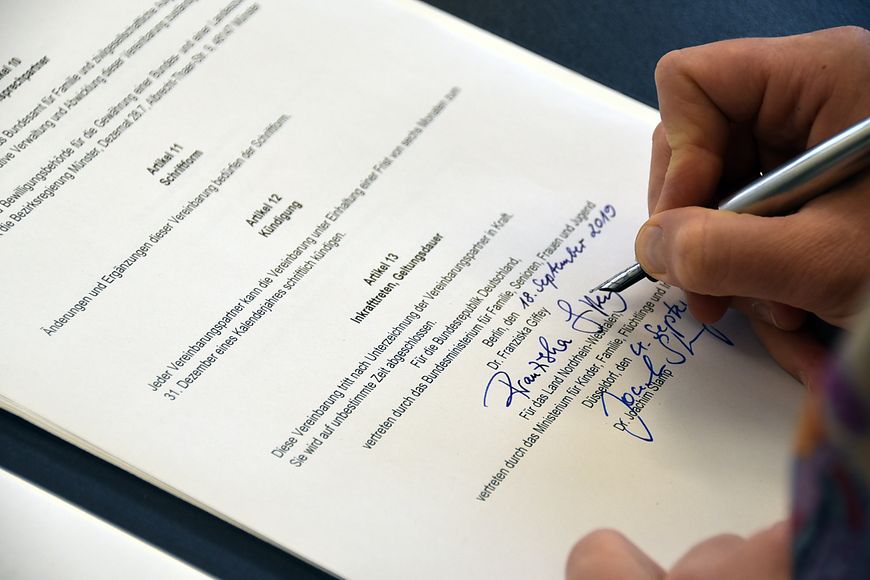 Artikel 10
s Bundesamt für Familie und zivilgesellschaftliche
Verwaltung und Abwicklung dieser Vereinbarung
Bewilligungsbehörde für die Gewährung einer Bundes- und einer
die Bezirksregierung Münster, Dezernat 28.7, Albrecht-Thaer-Str. 9, 48147 Münster
Artikel 11
Schriftform
Änderungen und Ergänzungen dieser Vereinbarung bedürfen der Schriftform.
Artikel 12
Kündigung
Jeder Vereinbarungspartner kann die Vereinbarung unter Einhaltung einer Frist von sechs Monaten zum
31. Dezember eines Kalenderjahres schriftlich kündigen.
Artikel 13
Inkrafttreten, Geltungsdauer
Diese Vereinbarung tritt nach Unterzeichnung der Vereinbarungspartner in Kraft.
Sie wird auf unbestimmte Zeit abgeschlossen.
Für die Bundesrepublik Deutschland,
vertreten durch das Bundesministerium für Familie, Senioren, Frauen und Jugend
Berlin, den 18. September 2019
Dr. Franziska Giffey
Franziska Giffey
Für das Land Nordrhein-Westfalen,
vertreten durch das Ministerium für Kinder, Familie, Flüchtlinge und
Düsseldorf, den 4. Septe
Dr. Joachim Stamp